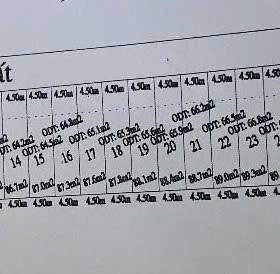 ít
4.50m 4.50m 4.50m 4.50m 4.50m 4.50m 4.50m 4.50m 4.50m 4.50m
ODT: 64.2m2 ODT: 64.5m2 ODT: 64.8m2 ODT: 65.1m2 ODT: 65.3m2 ODT: 65.6m2 ODT: 65.9m2 ODT: 66.2m2 ODT: 66.5m2 ODT: 66.8m2
14 15 16 17 18 19 20 21 22 23
86.7m2 87.0m2 87.3m2 87.6m2 87.8m2 88.1m2 88.4m2 88.7m2 89.0m2 89.3m2
4.50m 4.50m 4.50m 4.50m 4.50m 4.50m 4.50m 4.50m 4.50m 4.50m